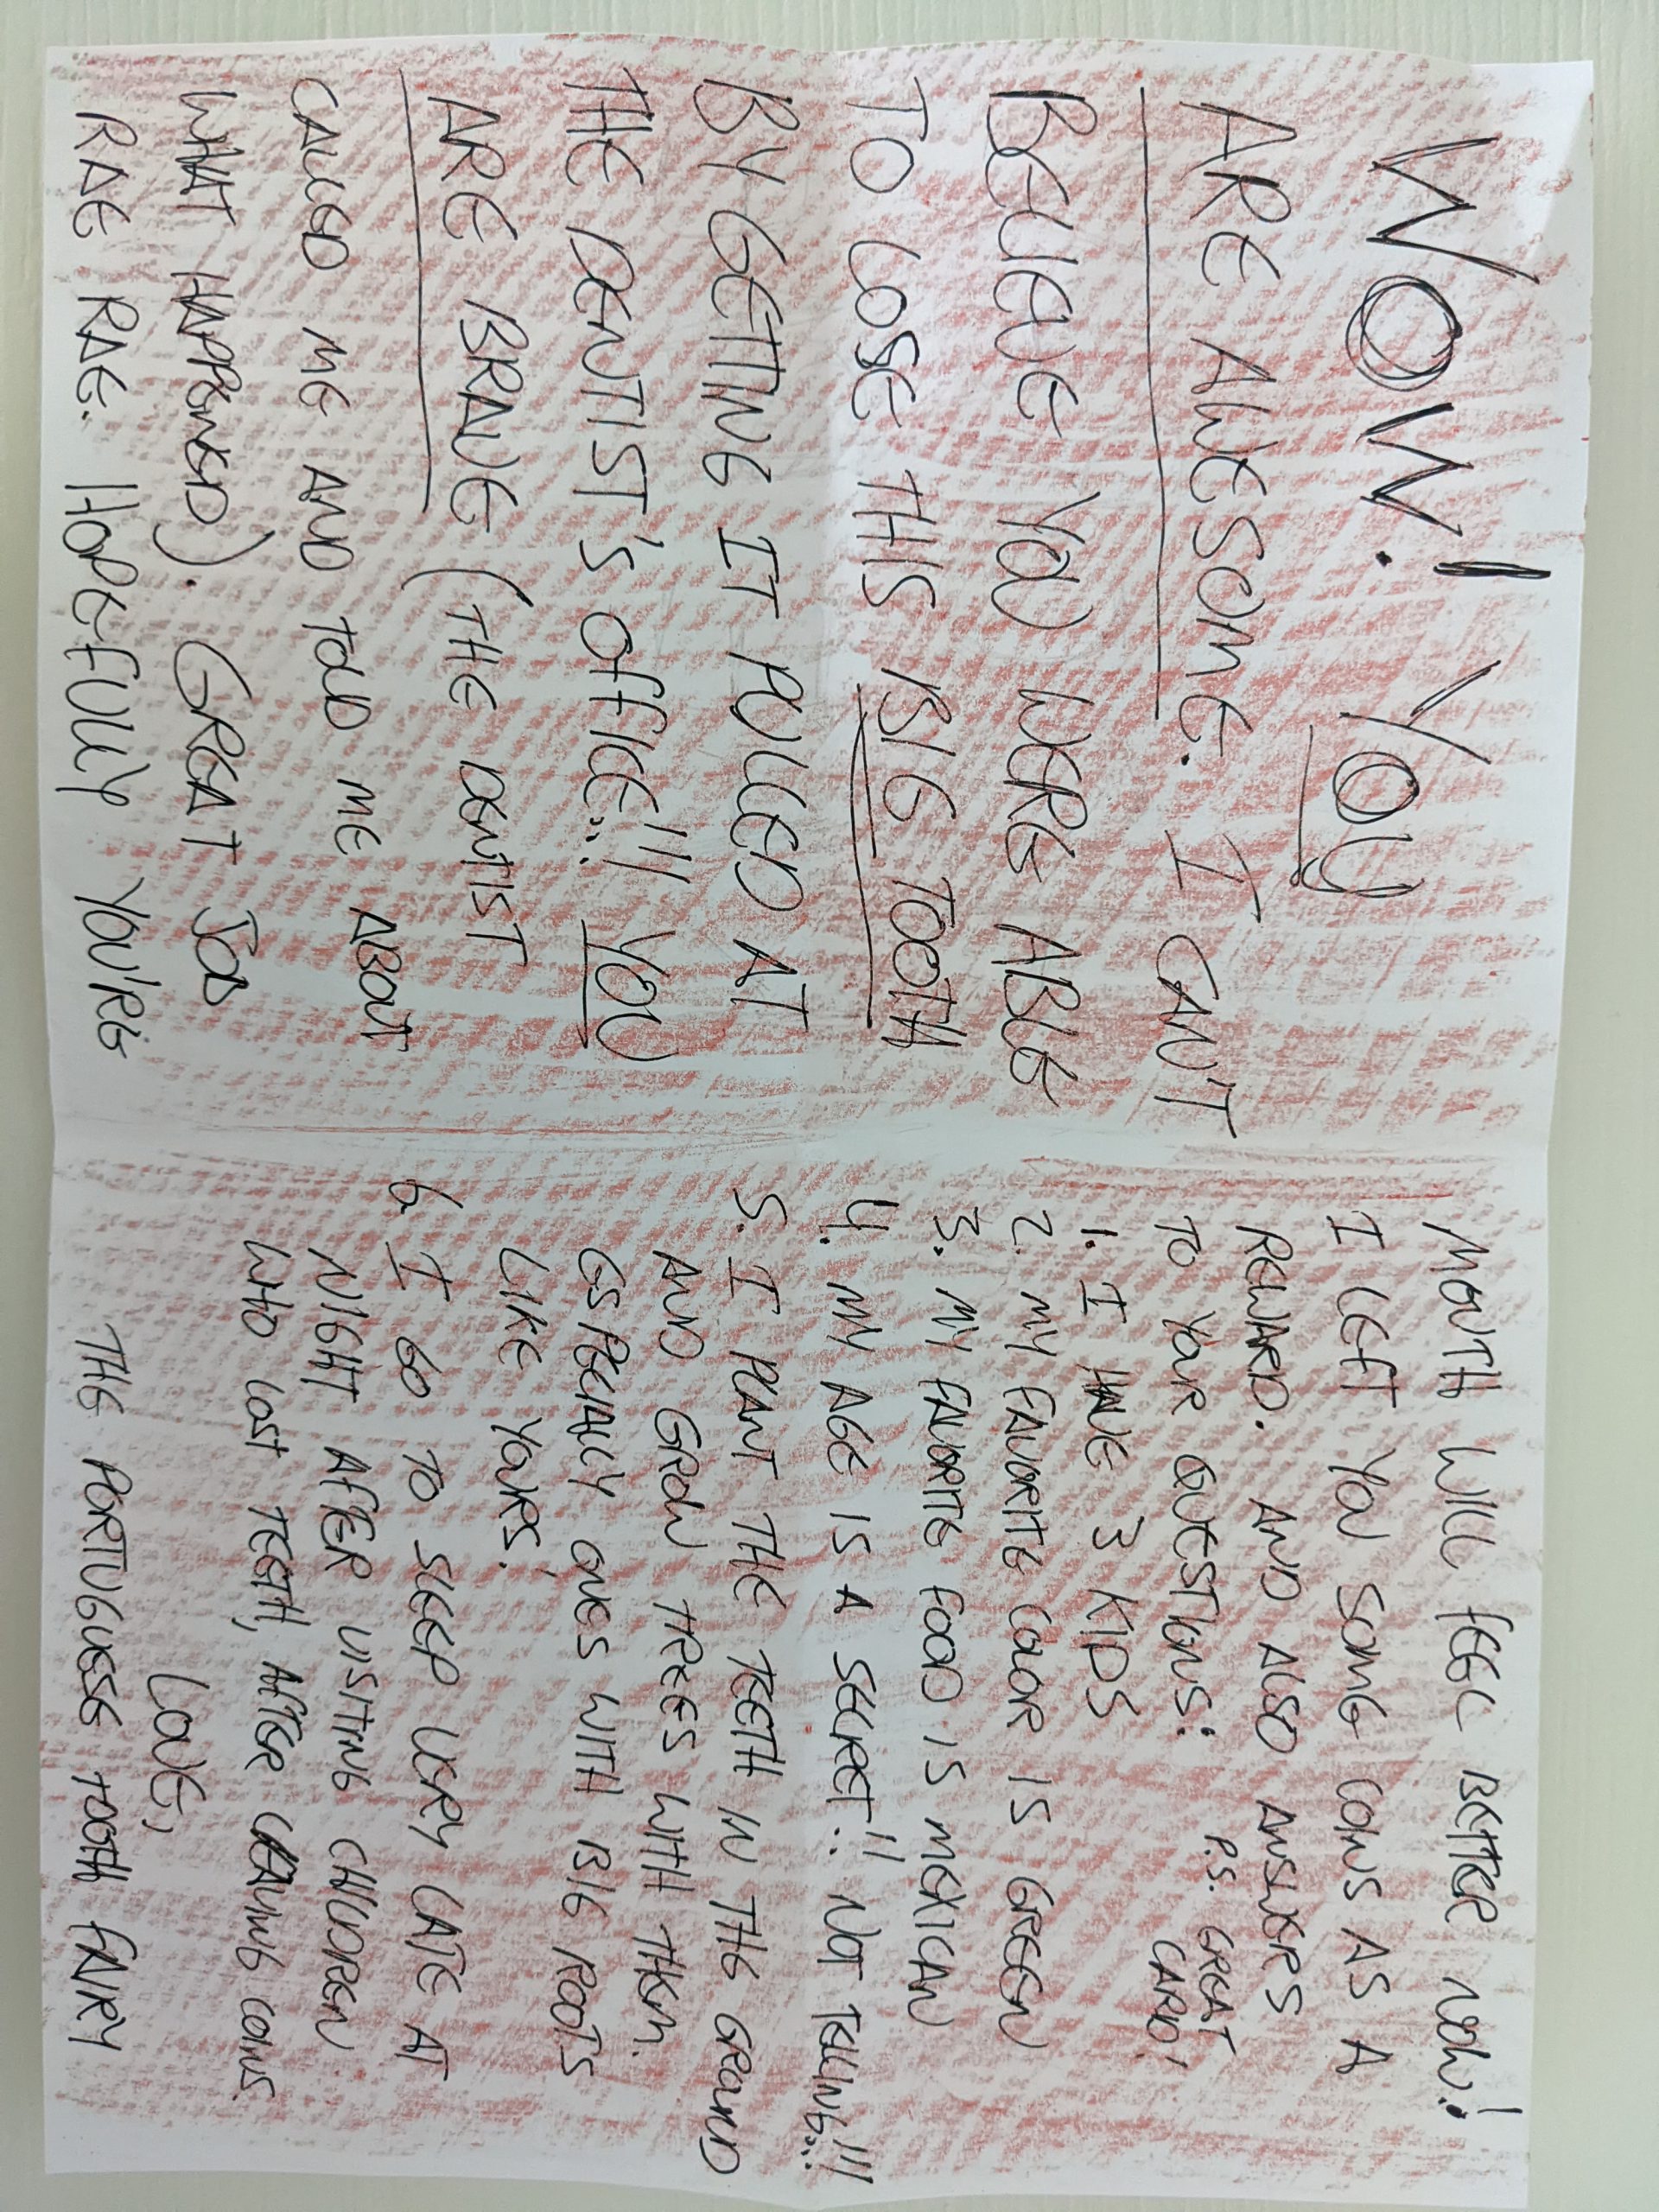 WOW! YOU
ARE AWESOME. I CAN'T
BELIEVE YOU WERE ABLE
TO LOSE THIS BIG TOOTH
BY GETTING IT PULLED AT
THE DENTIST'S OFFICE!!! YOU
ARE BRAVE (THE DENTIST
CALLED ME AND TOLD ME ABOUT
WHAT HAPPENED). GREAT JOB
RAE RAE RAE. HOPEFULLY YOU'RE
MOUTH WILL FEEL BETTER NOW!
I LEFT YOU SOME COINS AS A
REWARD. AND ALSO ANSWERS
TO YOUR QUESTIONS:
P.S. GREAT
CARD!
1. I HAVE 3 KIDS
2. MY FAVORITE COLOR IS GREEN
3. MY FAVORITE FOOD IS MEXICAN
4. MY AGE IS A SECRET!! NOT TELLING!!!
5. I PLANT THE TEETH IN THE GROUND
AND GROW TREES WITH THEM.
ESPECIALLY ONES WITH BIG ROOTS
LIKE YOURS.
6. I GO TO SLEEP VERY LATE AT
NIGHT AFTER VISTING CHILDREN
WHO LOST TEETH, AFTER LEAVING COINS.
LOVE,
THE PORTUGUESE TOOTH FAIRY